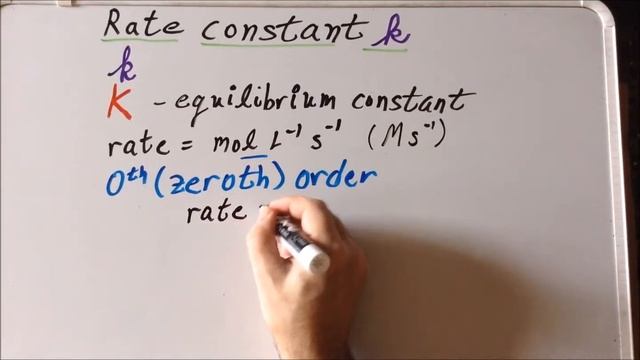 Rate constant k
k
K - equilibrium constant
rate = mol L⁻¹ s⁻¹ (Ms⁻¹)
0ᵗʰ (zeroth) order
rate =